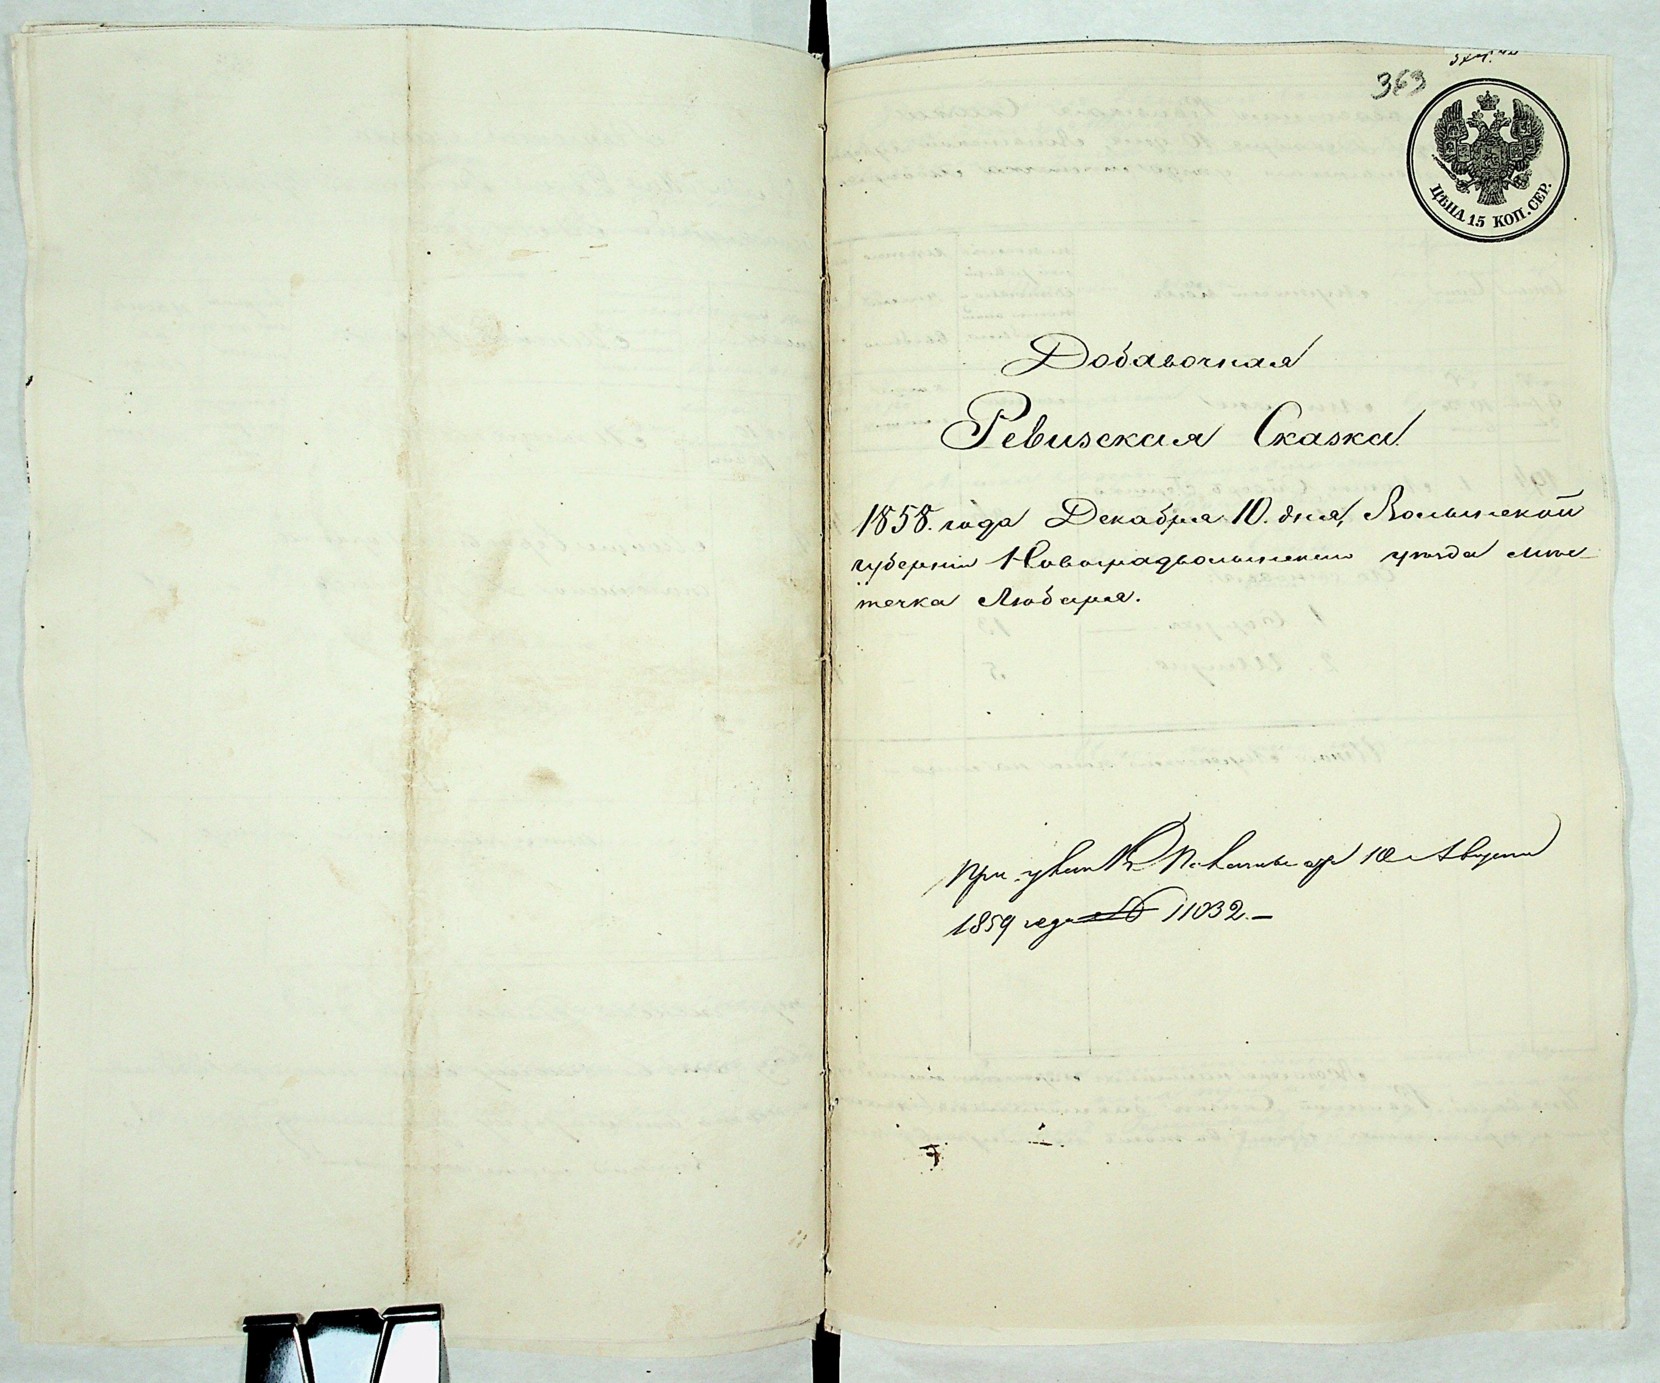 363
ЦѢНА 15 КОП. СЕР.
Добавочная
Ревизская Сказка
1858. года Декабря 10. дня, Волынской
губерніи Новоградволынскаго уѣзда мѣс-
течка Любаря.
При 10 Августа
1859 года № 11032.—